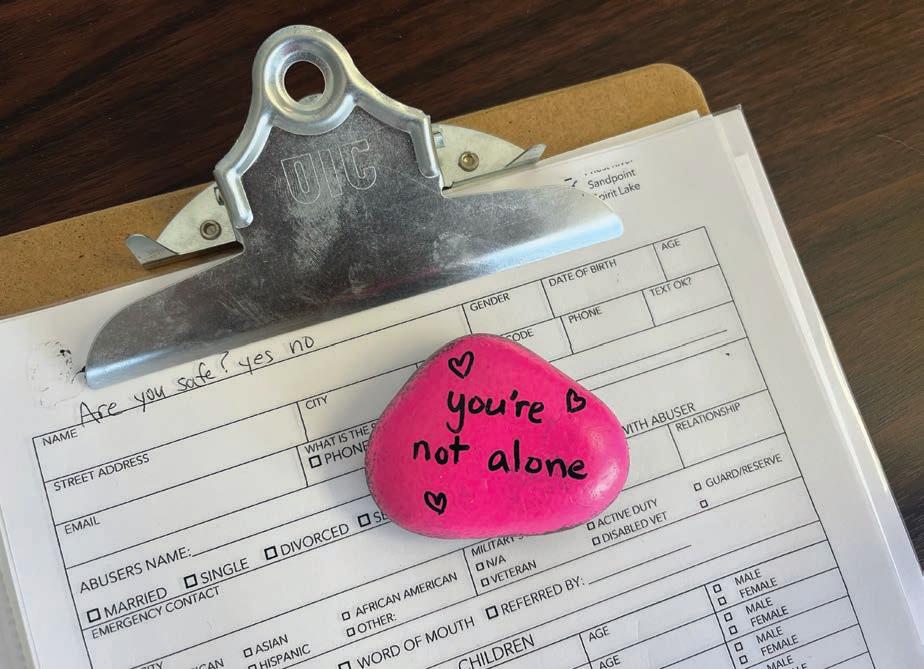 OIC
Sandpoint
Spirit Lake
Are you safe? yes no
NAME
GENDER
DATE OF BIRTH
AGE
STREET ADDRESS
CITY
CODE
PHONE
TEXT OK?
EMAIL
WHAT IS THE
PHONE
you're
not alone
WITH ABUSER
RELATIONSHIP
ABUSERS NAME:
MARRIED
SINGLE
DIVORCED
MILITARY
N/A
VETERAN
ACTIVE DUTY
DISABLED VET
GUARD/RESERVE
EMERGENCY CONTACT
ASIAN
HISPANIC
AFRICAN AMERICAN
OTHER:
WORD OF MOUTH
REFERRED BY:
CHILDREN
AGE
AGE
MALE
FEMALE
MALE
FEMALE
MALE
FEMALE